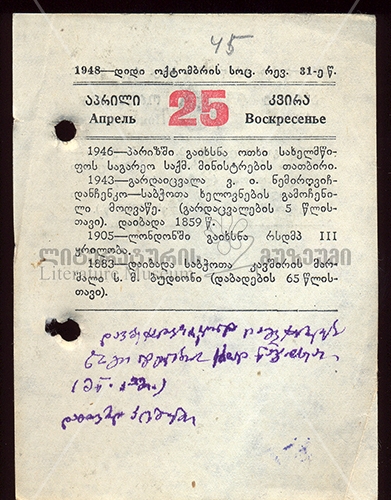 45
1948—დიდი ოქტომბრის სოც. რევ. 31-ე წ.
აპრილი 25 კვირა
Апрель Воскресенье
1946—პარიზში გაიხსნა ოთხი სახელმწი-
ფოს საგარეო საქმ. მინისტრების თათბირი.
1943—გარდაიცვალა ვ. ი. ნემიროვიჩ-
დანჩენკო—საბჭოთა ხელოვნების გამოჩენი-
ლი მოღვაწე. (გარდაცვალების 5 წლის-
თავი). დაიბადა 1859 წ.
1905—ლონდონში გაიხსნა რსდმპ III
ყრილობა.
ლიტერატურის მუზეუმი
Literature Museum
1883—დაიბადა საბჭოთა კავშირის მარ-
შალი ს. მ. ბუდიონი (დაბადების 65 წლის-
თავი).